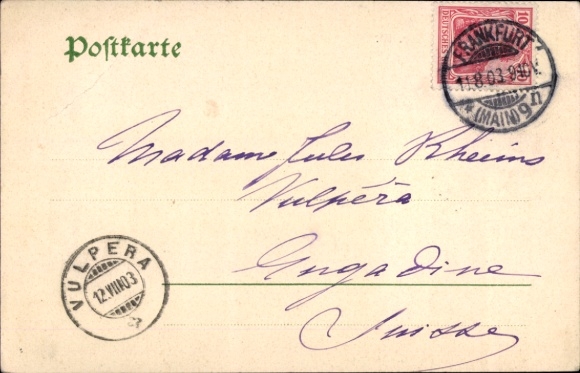 Postkarte
10
DEUTSCHES
FRANKFURT
11.8.03
* (MAIN) 9n
Madame Jules Rheims
Vulpéra
Engadine
Suisse
VULPERA
12.VIII.03